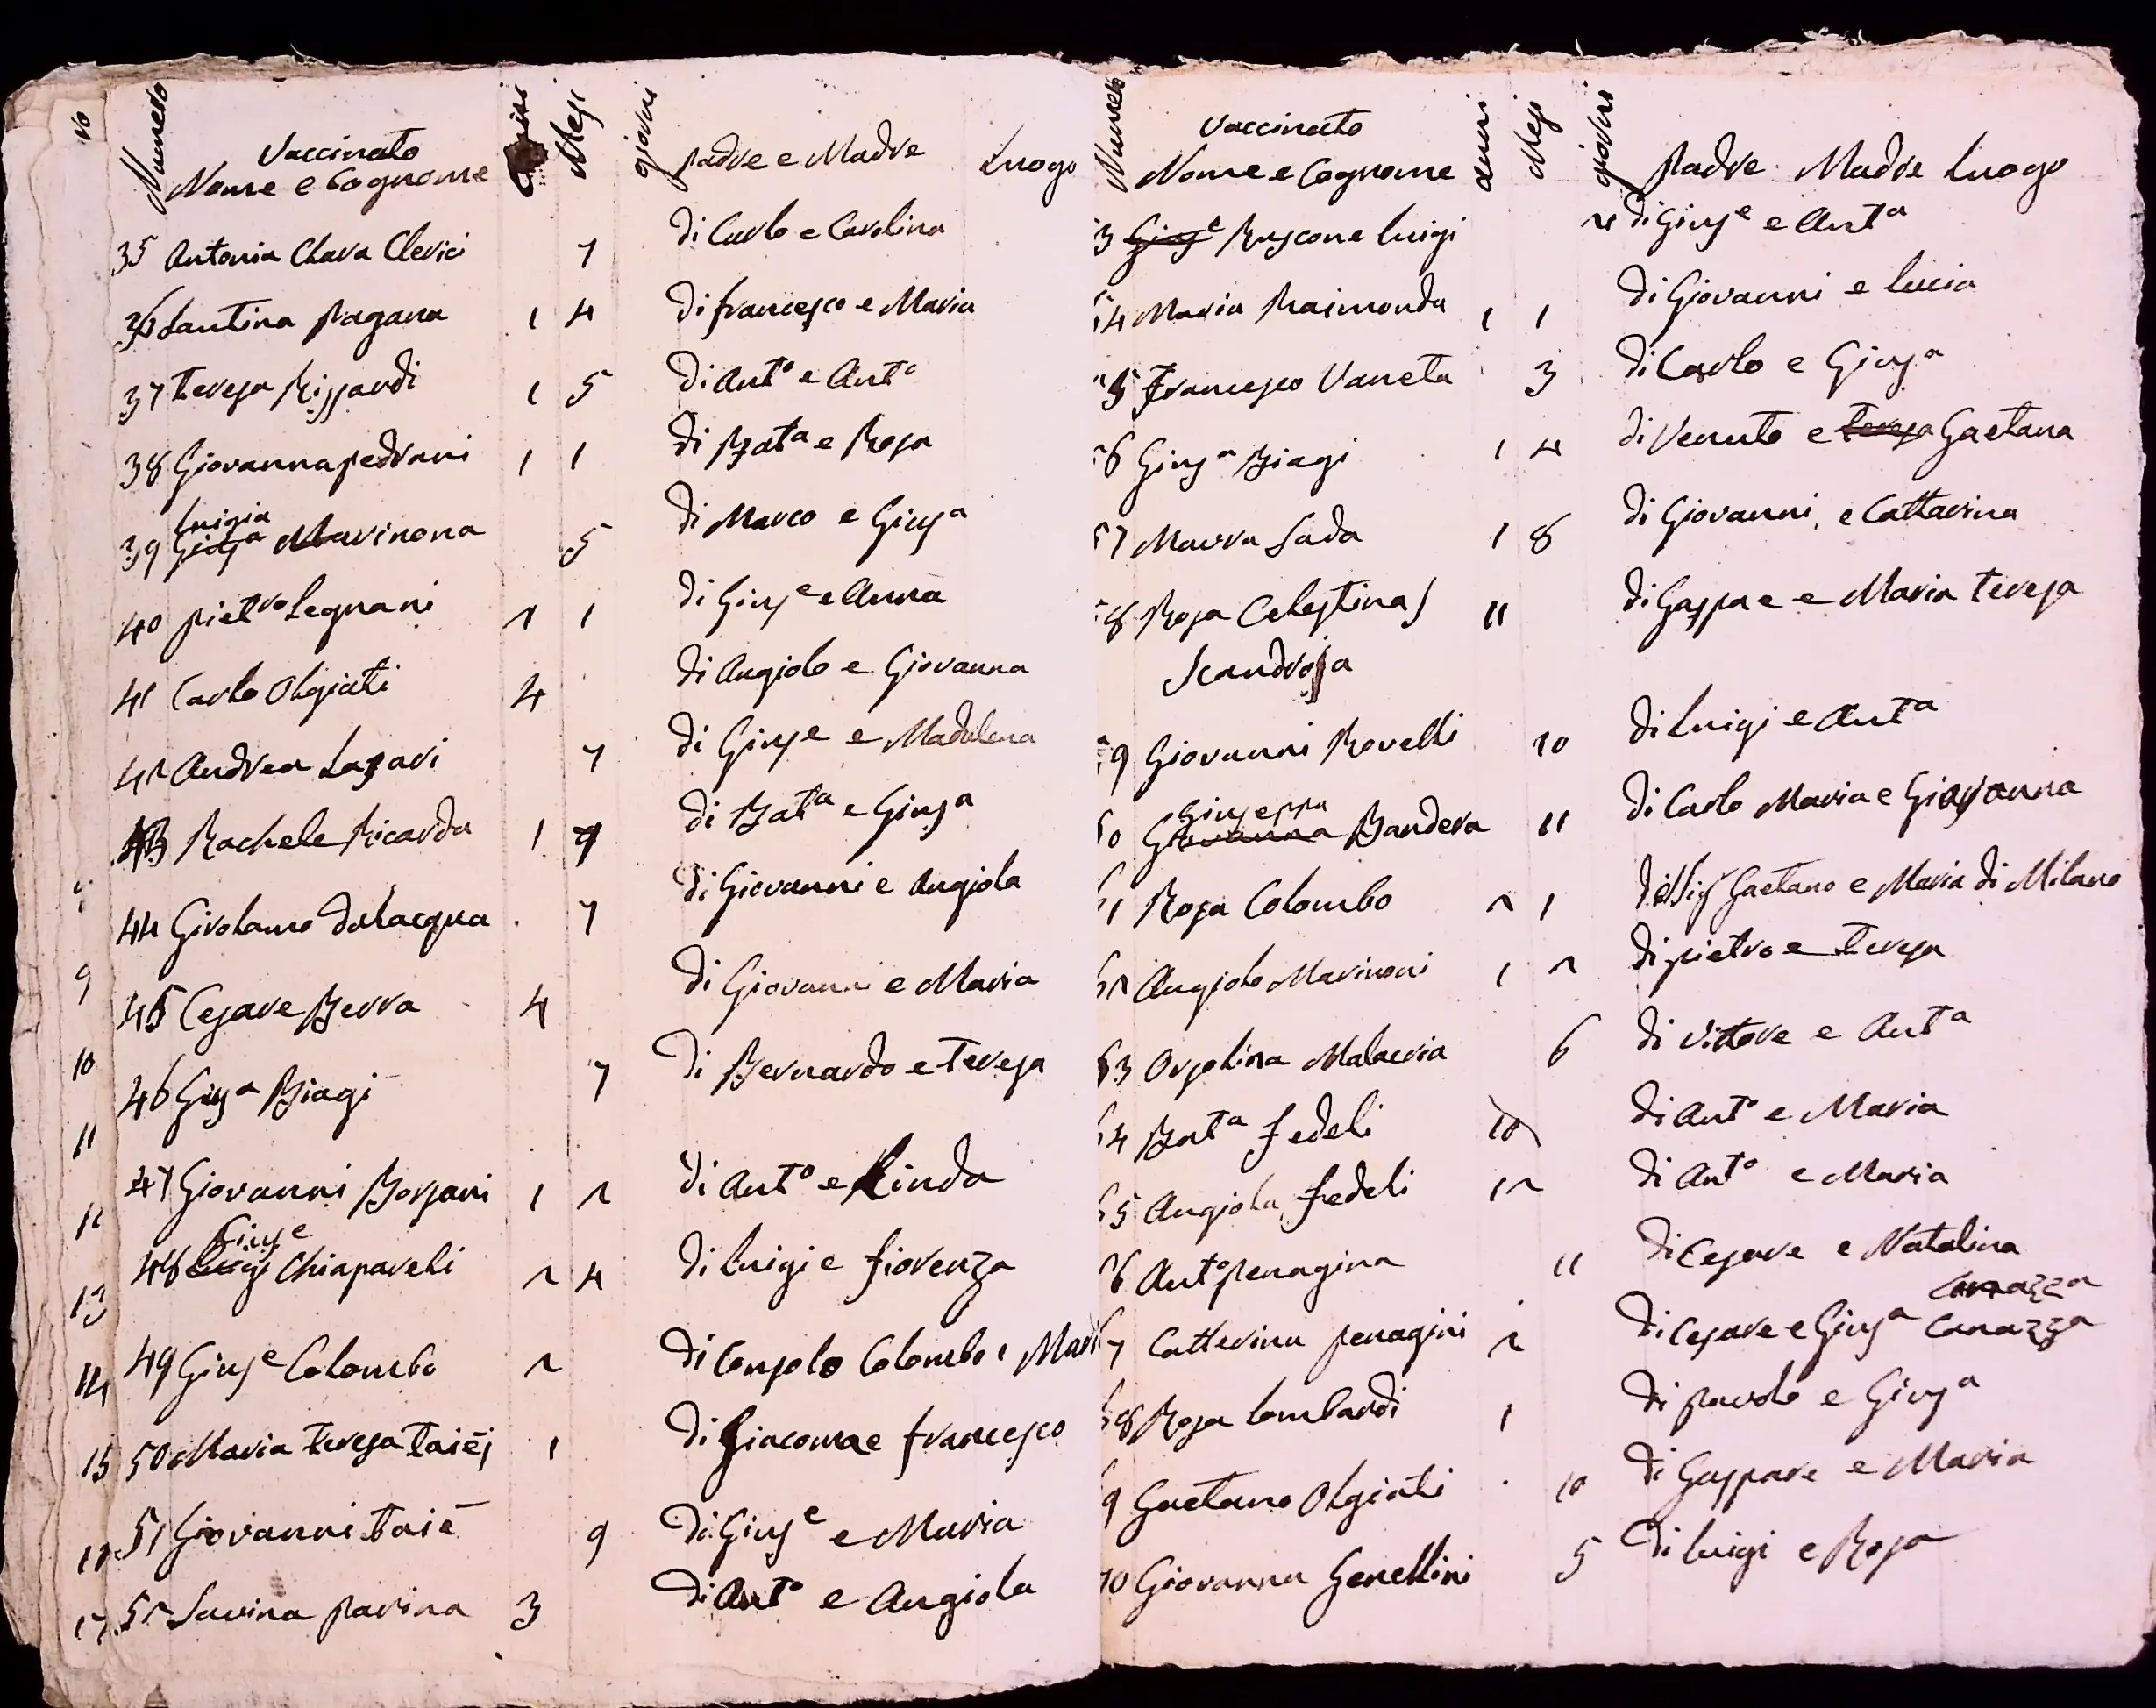 Numero Vaccinato Nome e Cognome Anni Mesi giorni padre e Madre Luogo
35 Antonia Chiara Clerici 7 di Carlo e Carolina
36 Santina pagana 1 4 di francesco e Maria
37 Teresa Rizzardi 1 5 di Ant.o e Ant.a
38 Giovanna pedrani 1 1 di Bat.a e Rosa
Luigia
39 Gius.a Marinona 5 di Marco e Gius.a
40 pietro Legnani 2 1 di Gius.e e Anna
41 Carlo Olgiati 4 di Angiolo e Giovanna
42 Andrea Lazari 7 di Gius.e e Madalena
43 Rachele Ricarda 1 7 di Bat.a e Gius.a
44 Girolamo dalacqua 7 di Giovanni e Angiola
45 Cesare Berra 4 di Giovanni e Maria
46 Gius.a Biagi 7 di Bernardo e Teresa
47 Giovanni Borsani 1 2 di Ant.o e Linda
Gius.e
48 Luigi Chiapareli 2 4 di Luigi e fiorenza
49 Gius.e Colombo 2 di Consolo Colombo e Mari
50 Maria Teresa Taiè 1 di Giacoma e francesco
51 Giovanni Taiè 9 di Gius.e e Maria
52 Savina parina 3 di Ant.o e Angiola
Numero Vaccinato Nome e Cognome anni Mesi giorni padre Madre Luogo
3 Gius.e Ruscone Luigi di Gius.e e Ant.a
4 Maria Raimonda 1 1 di Giovanni e Lucia
5 Francesco Vaneta 3 di Carlo e Gius.a
6 Gius.a Biagi 1 4 di Venuto e Teresa Gaetana
7 Maura Sada 1 8 di Giovanni, e Cattarina
8 Rosa Celestina 11 di Gaspae e Maria Teresa
Scandrosa
9 Giovanni Rovelli 10 di Luigi e Ant.a
Giuseppa
60 Giovanna Bandera 11 di Carlo Maria e Giovanna
61 Rosa Colombo 2 1 del Sig.r Gaetano e Maria di Milano
62 Angiolo Marinoni 1 2 di pietro e Teresa
63 Orsolina Malacria 6 di Vittore e Ant.a
64 Bat.a fedeli 10 di Ant.o e Maria
65 Angiola fedeli 12 di Ant.o e Maria
66 Ant.o penagina 11 di Cesare e Natalina
Canazza
67 Catterina penagini 2 di Cesare e Gius.a Canazza
68 Rosa Lombardi 1 di paolo e Gius.a
69 Gaetano Olgiati 10 di Gaspare e Maria
70 Giovanna Genellini 5 di Luigi e Rosa
9
10
11
12
13
14
15